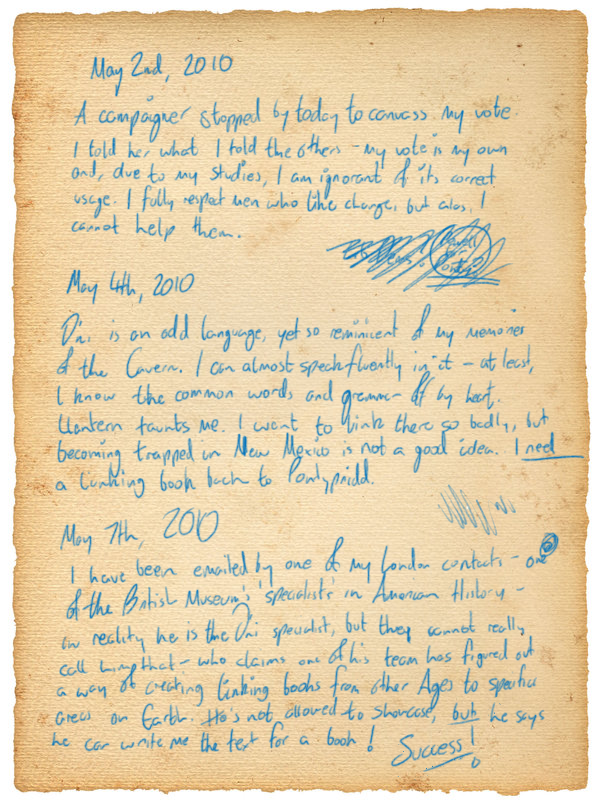 May 2nd, 2010
A campaigner stopped by today to canvass my vote.
I told her what I told the others - my vote is my own
and, due to my studies, I am ignorant of its correct
usage. I fully respect men who like change, but alas, I
cannot help them.
May 4th, 2010
D'ni is an odd language, yet so reminicent of my memories
of the Cavern. I can almost speak fluently in it - at least,
I know the common words and grammar off by heart.
taunts me. I want to link there so badly, but
becoming trapped in New Mexico is not a good idea. I need
a linking book back to Pontypridd.
May 7th, 2010
I have been emailed by one of my London contacts - one
of the British Museum's 'specialists' in American History -
in reality he is the D'ni specialist, but they cannot really
call him that - who claims one of his team has figured out
a way of creating linking books from other Ages to specific
areas on Earth. He's not allowed to showcase, but he says
he can write me the text for a book!
Success!